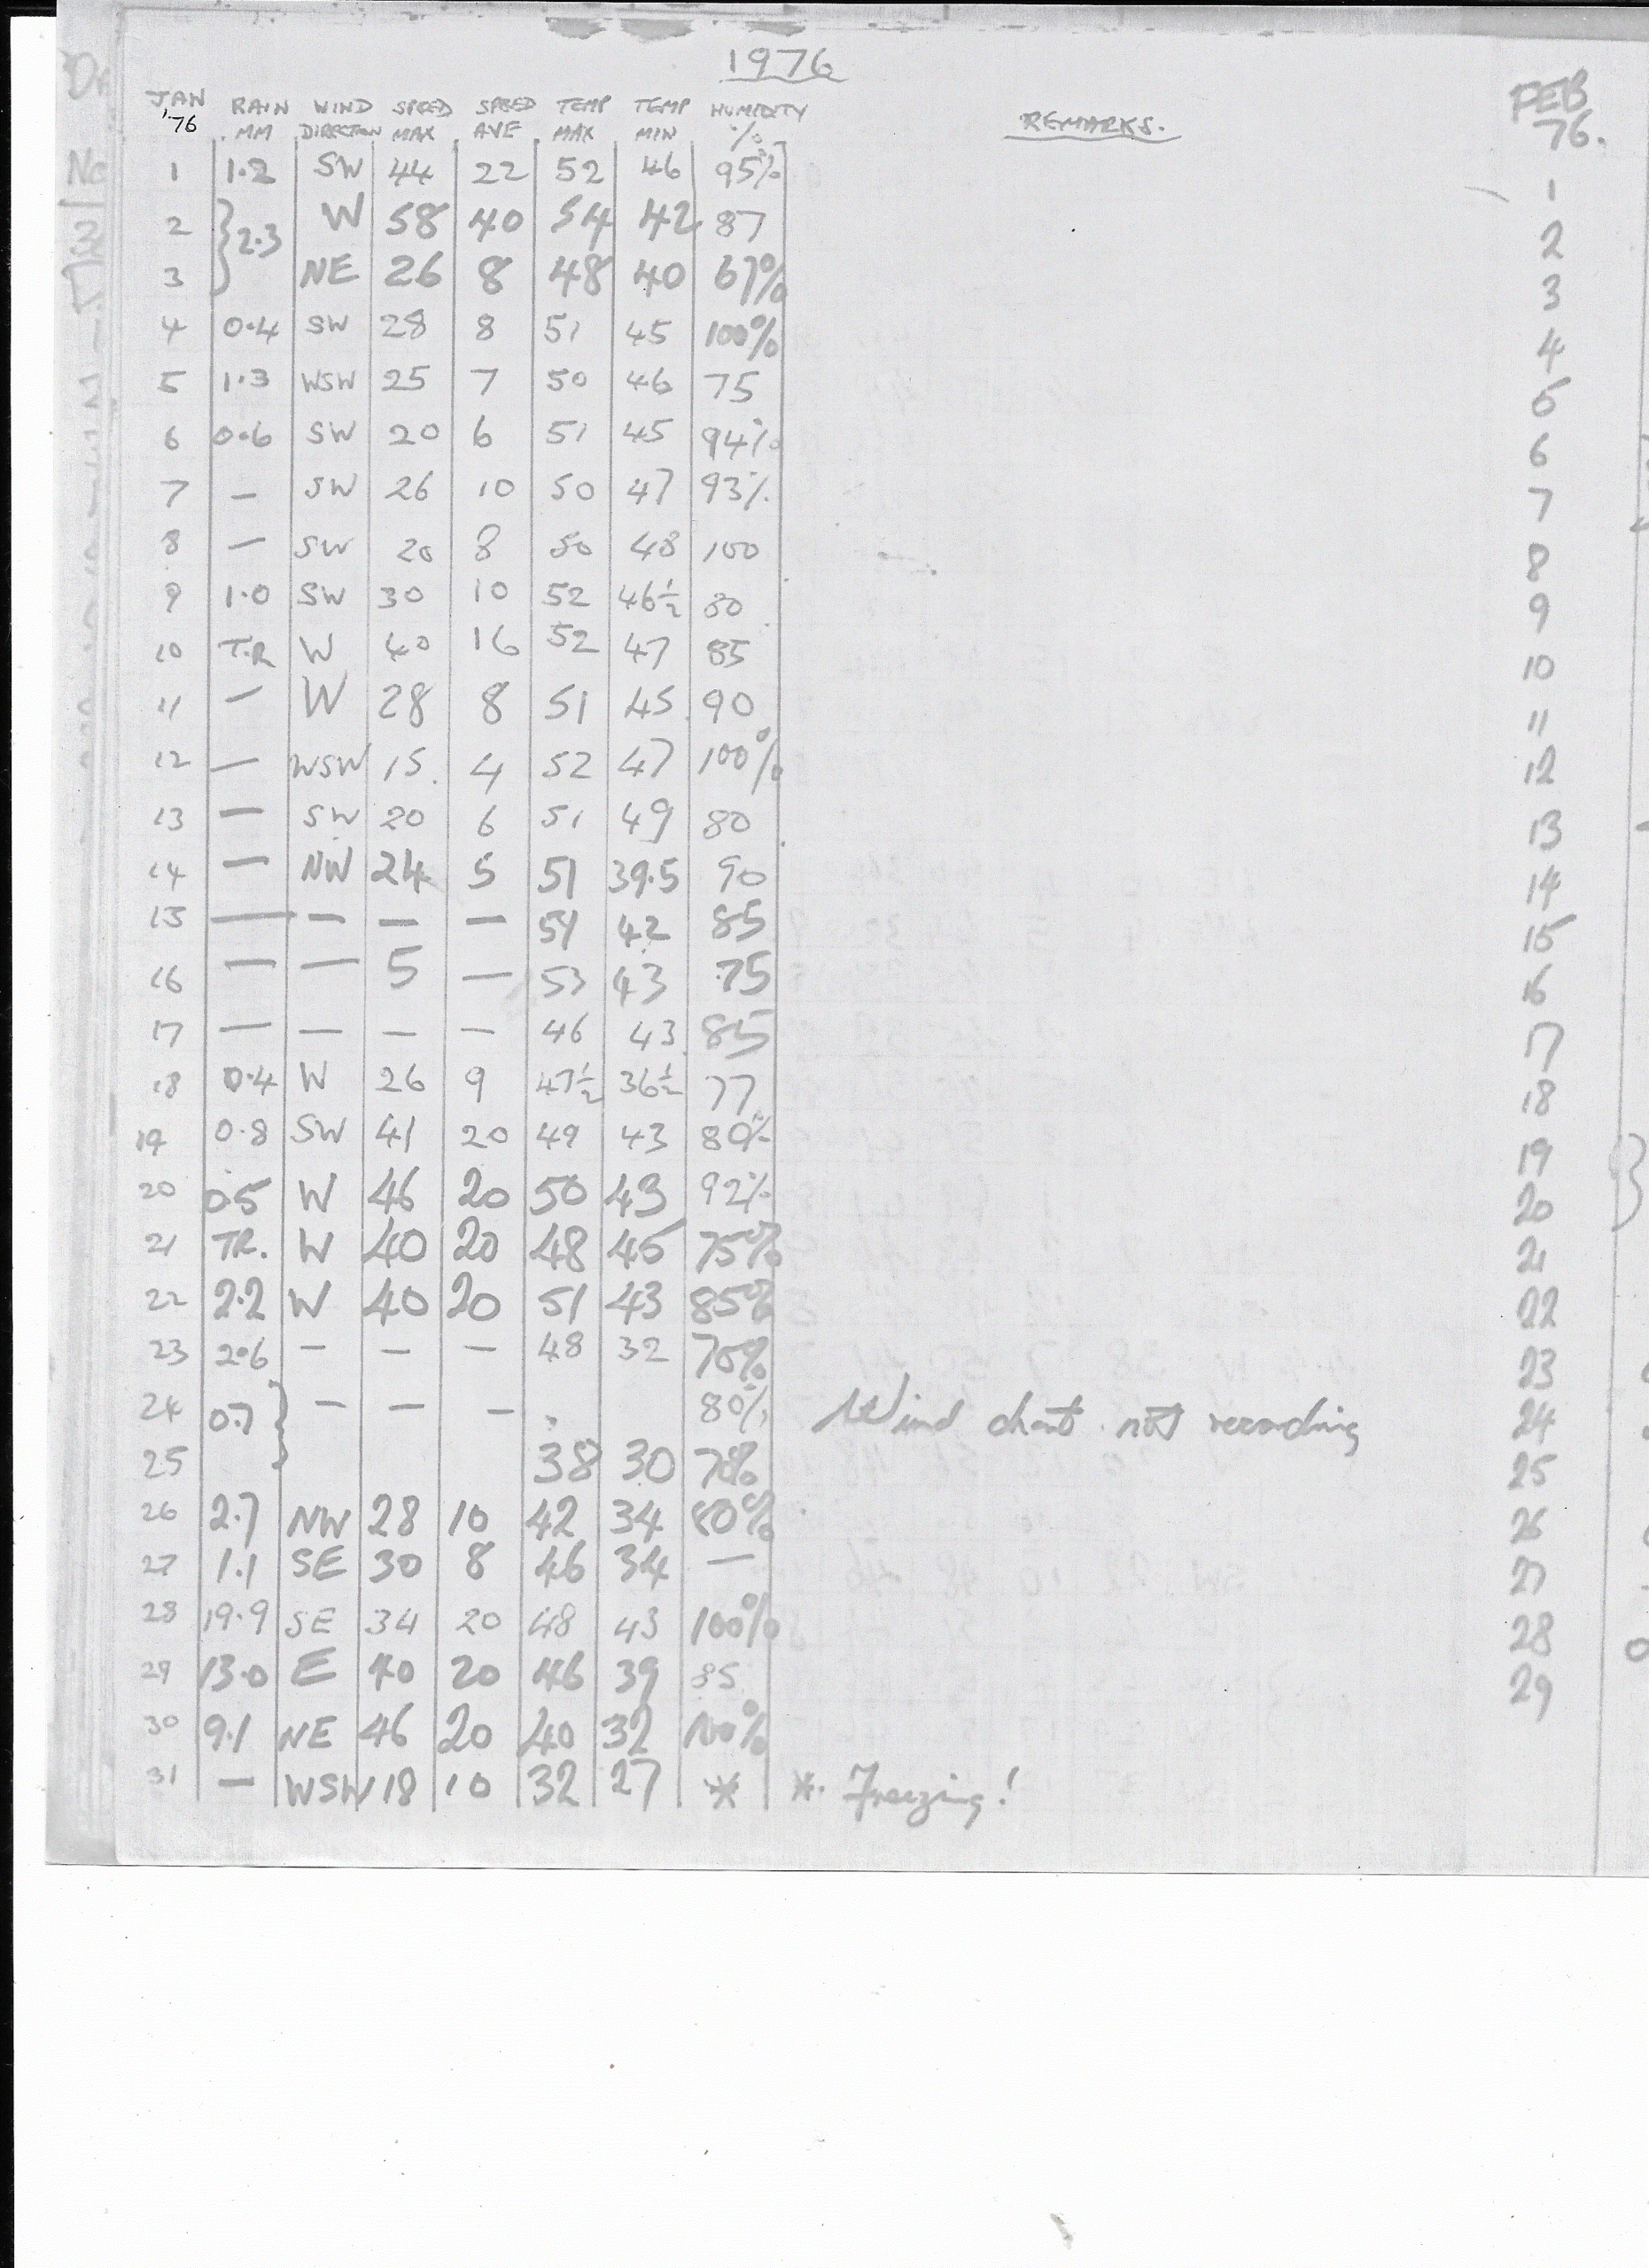 1976
JAN '76 RAIN MM WIND DIRECTION SPEED MAX SPEED AVE TEMP MAX TEMP MIN HUMIDITY % REMARKS. FEB 76.
1 1.2 SW 44 22 52 46 95% 1
2 } 2.3 W 58 40 54 42 87 2
3 NE 26 8 48 40 67% 3
4 0.4 SW 28 8 51 45 100% 4
5 1.3 WSW 25 7 50 46 75 5
6 0.6 SW 20 6 51 45 94% 6
7 — SW 26 10 50 47 93% 7
8 — SW 20 8 50 48 100 8
9 1.0 SW 30 10 52 46½ 80 9
10 T.R W 40 16 52 47 85 10
11 — W 28 8 51 45 90 11
12 — WSW 15. 4 52 47 100% 12
13 — SW 20 6 51 49 80 13
14 — NW 24 5 51 39.5 90 14
15 — — — — 51 42 85 15
16 — — 5 — 53 43 75 16
17 — — — — 46 43 85 17
18 0.4 W 26 9 47½ 36½ 77 18
19 0.8 SW 41 20 49 43 80% 19
20 0.5 W 46 20 50 43 92% 20
21 TR. W 40 20 48 45 75% 21
22 2.2 W 40 20 51 43 85% 22
23 2.6 — — — 48 32 70% 23
24 0.7 } — — — 80% Wind chart not recording 24
25 38 30 78% 25
26 2.7 NW 28 10 42 34 80% 26
27 1.1 SE 30 8 46 34 — 27
28 19.9 SE 34 20 48 43 100% 28
29 13.0 E 40 20 46 39 85 29
30 9.1 NE 46 20 40 32 100%
31 — WSW 18 10 32 27 * *. Freezing!